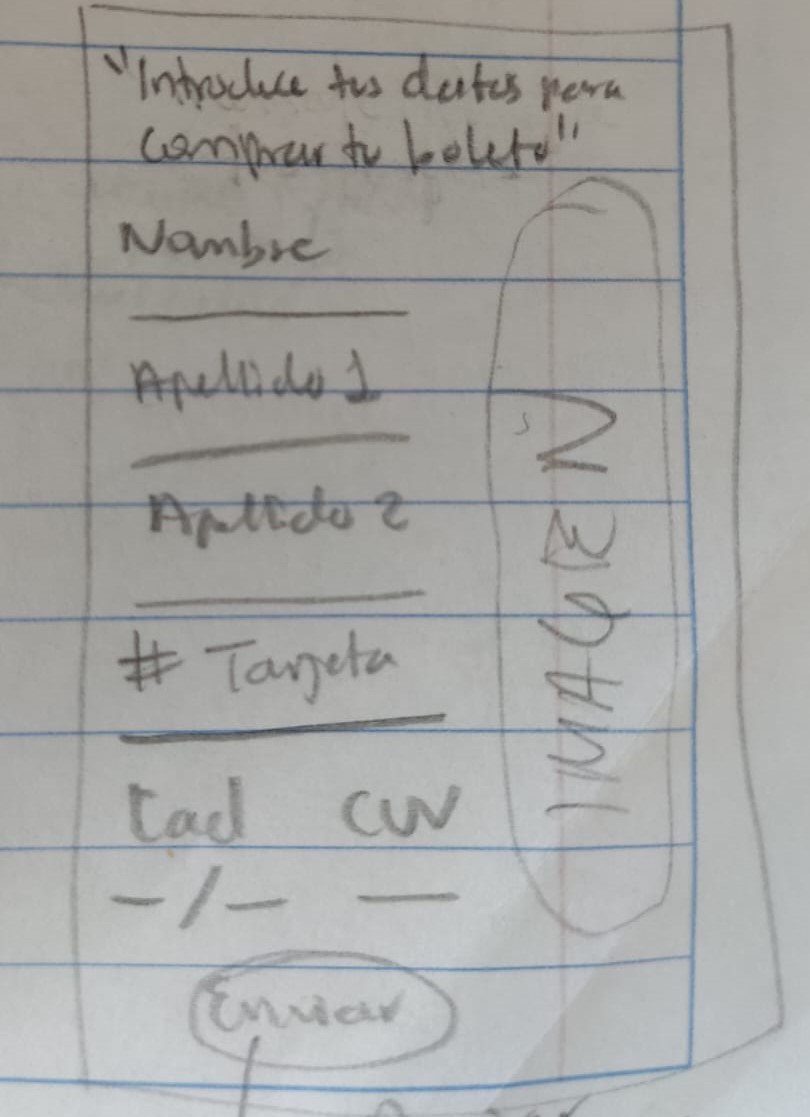 "Introduce tus datos para
comprar tu boleto"
Nombre
Apellido 1
Apellido 2
# Tarjeta
Cad CVV
-/- -
Enviar
IMAGEN